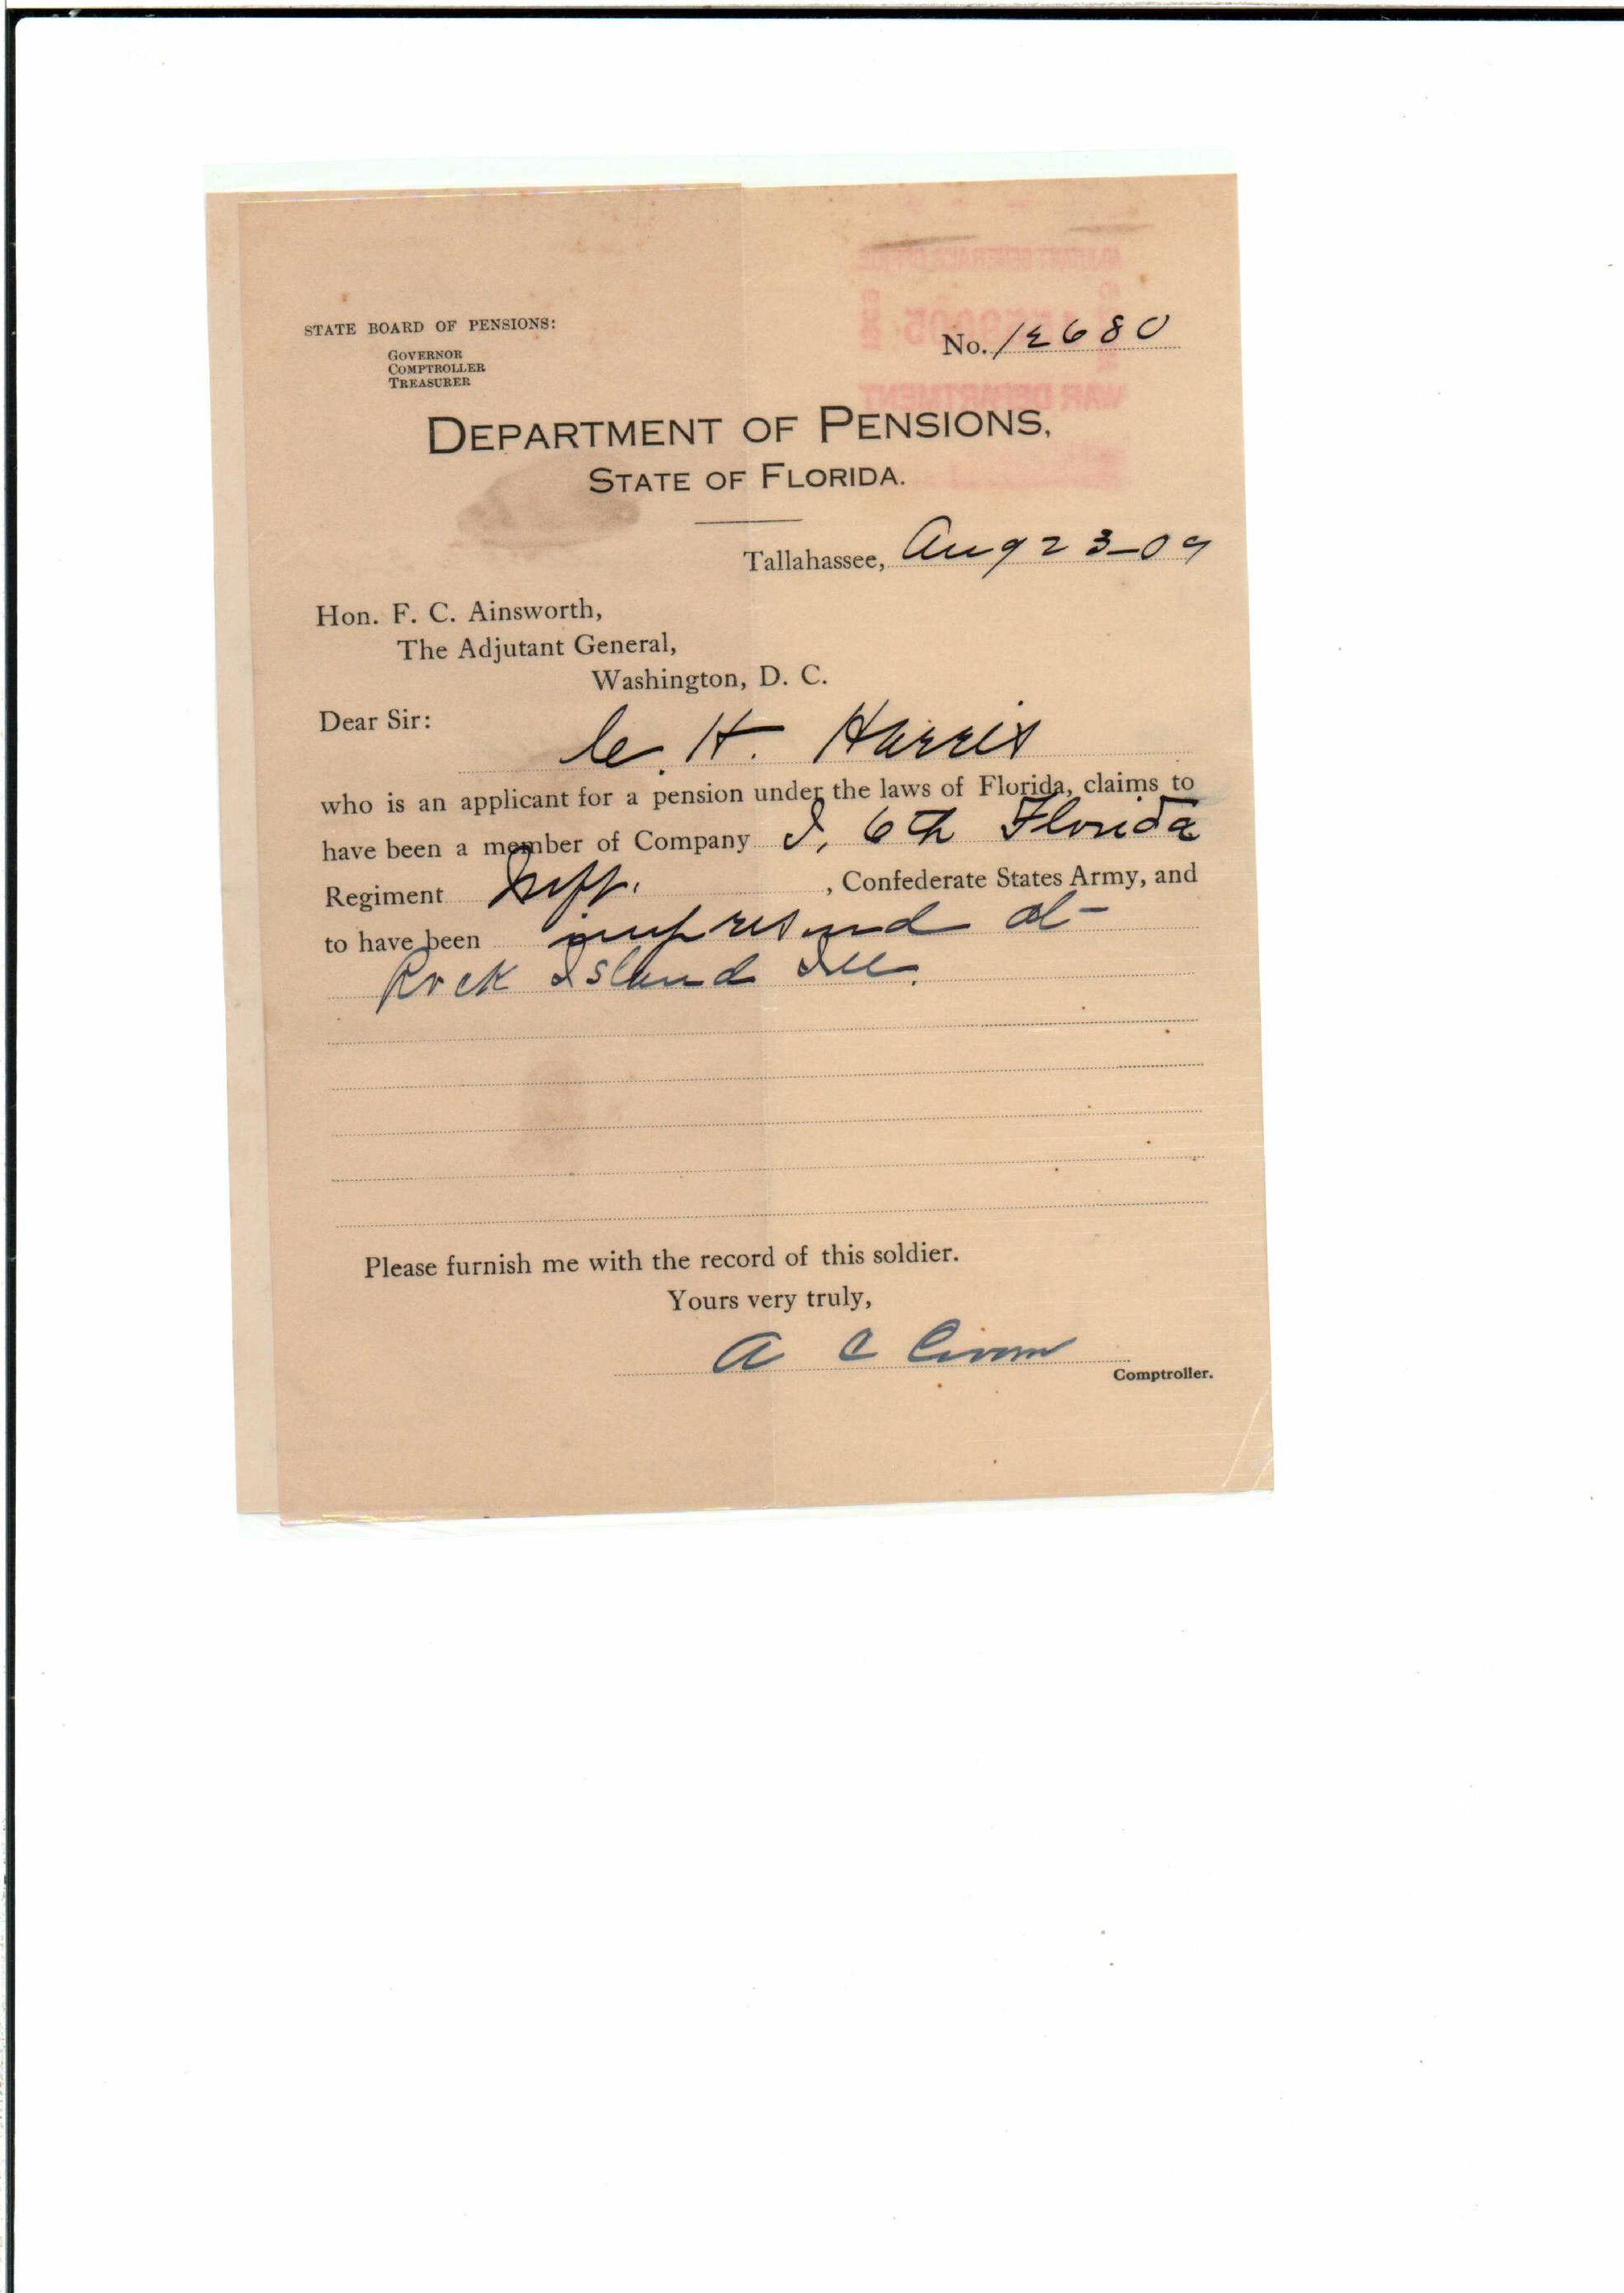 STATE BOARD OF PENSIONS:
GOVERNOR
COMPTROLLER
TREASURER
No. 12680
DEPARTMENT OF PENSIONS,
STATE OF FLORIDA.
Tallahassee, Aug 23-09
Hon. F. C. Ainsworth,
The Adjutant General,
Washington, D. C.
Dear Sir:
C. H. Harris
who is an applicant for a pension under the laws of Florida, claims to
have been a member of Company I, 6th Florida
Regiment Inff. , Confederate States Army, and
to have been imprisoned at
Rock Island Ill.
Please furnish me with the record of this soldier.
Yours very truly,
A C Croom
Comptroller.
WAR DEPARTMENT